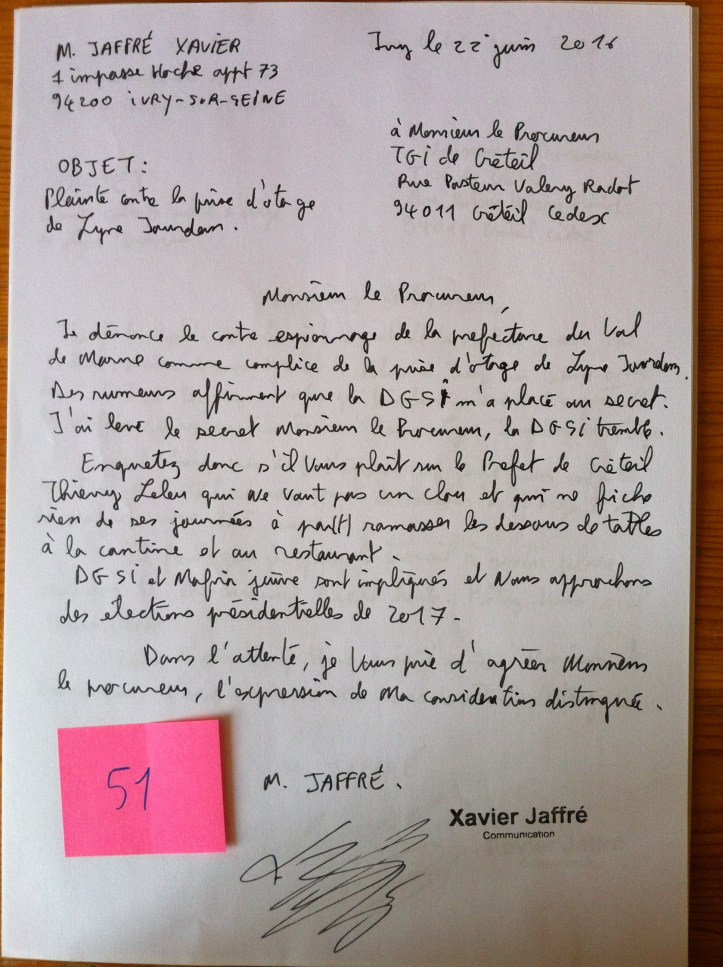 M. JAFFRÉ XAVIER
1 impasse Hoche appt 73
94200 iVRY-SUR-SEINE
Ivry le 22 juin 2016
à Monsieur le Procureur
TGi de Créteil
Rue Pasteur Valery Radot
94011 Créteil Cedex
OBJET:
Plainte contre la prise d'otage
de Lyne Jourdan.
Monsieur le Procureur,
Je dénonce le contre espionnage de la prefecture du Val
de Marne comme complice de la prise d'otage de Lyne Jourdan.
Des rumeurs affirment que la DGSi m'a placé au secret.
J'ai levé le secret Monsieur le Procureur, la DGSi tremble.
Enquetez donc s'il Vous plaît sur le Prefet de Créteil
Thierry Leleu qui ne vaut pas un clou et qui ne fiche
rien de ses journées à part ramasser les dessous de tables
à la cantine et au restaurant.
DGSi et Mafia juive sont impliqués et Nous approchons
des elections présidentielles de 2017-
Dans l'attente, je Vous prie d'agréer Monsieur
le procureur, l'expression de Ma considération distinguée.
51
M. JAFFRÉ.
Xavier Jaffré
Communication